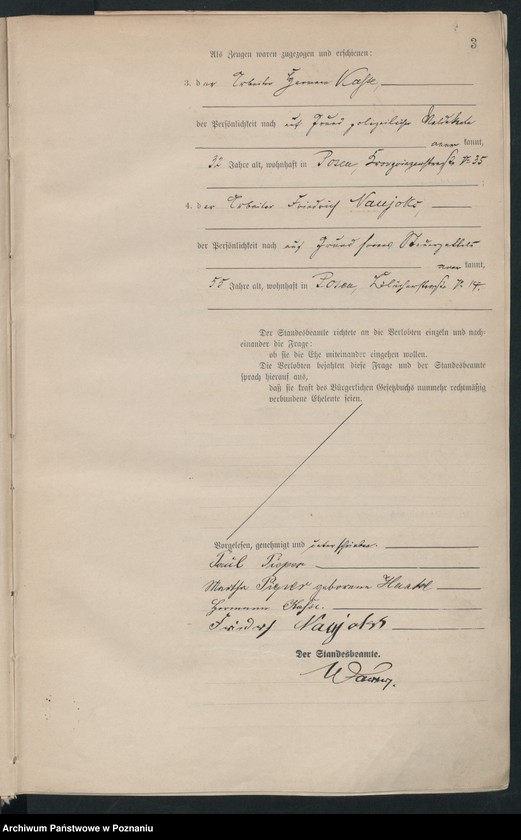 3
Als Zeugen waren zugezogen und erschienen:
3. der Arbeiter Hermann
der Persönlichkeit nach auf Grund
kannt,
32 Jahre alt, wohnhaft in Posen, Kronprinzenstraße № 35
4. der Arbeiter Friedrich Naujoks,
der Persönlichkeit nach auf Grund seines
kannt,
55 Jahre alt, wohnhaft in Posen, Blücherstraße № 14.
Der Standesbeamte richtete an die Verlobten einzeln und nach-
einander die Frage:
ob sie die Ehe miteinander eingehen wollen.
Die Verlobten bejahten diese Frage und der Standesbeamte
sprach hierauf aus,
daß sie kraft des Bürgerlichen Gesetzbuchs nunmehr rechtmäßig
verbundene Eheleute seien.
Vorgelesen, genehmigt und unterschrieben.
Paul Pieper
Martha Pieper geborene
Hermann
Friedrich Naujoks
Der Standesbeamte.
Archiwum Państwowe w Poznaniu